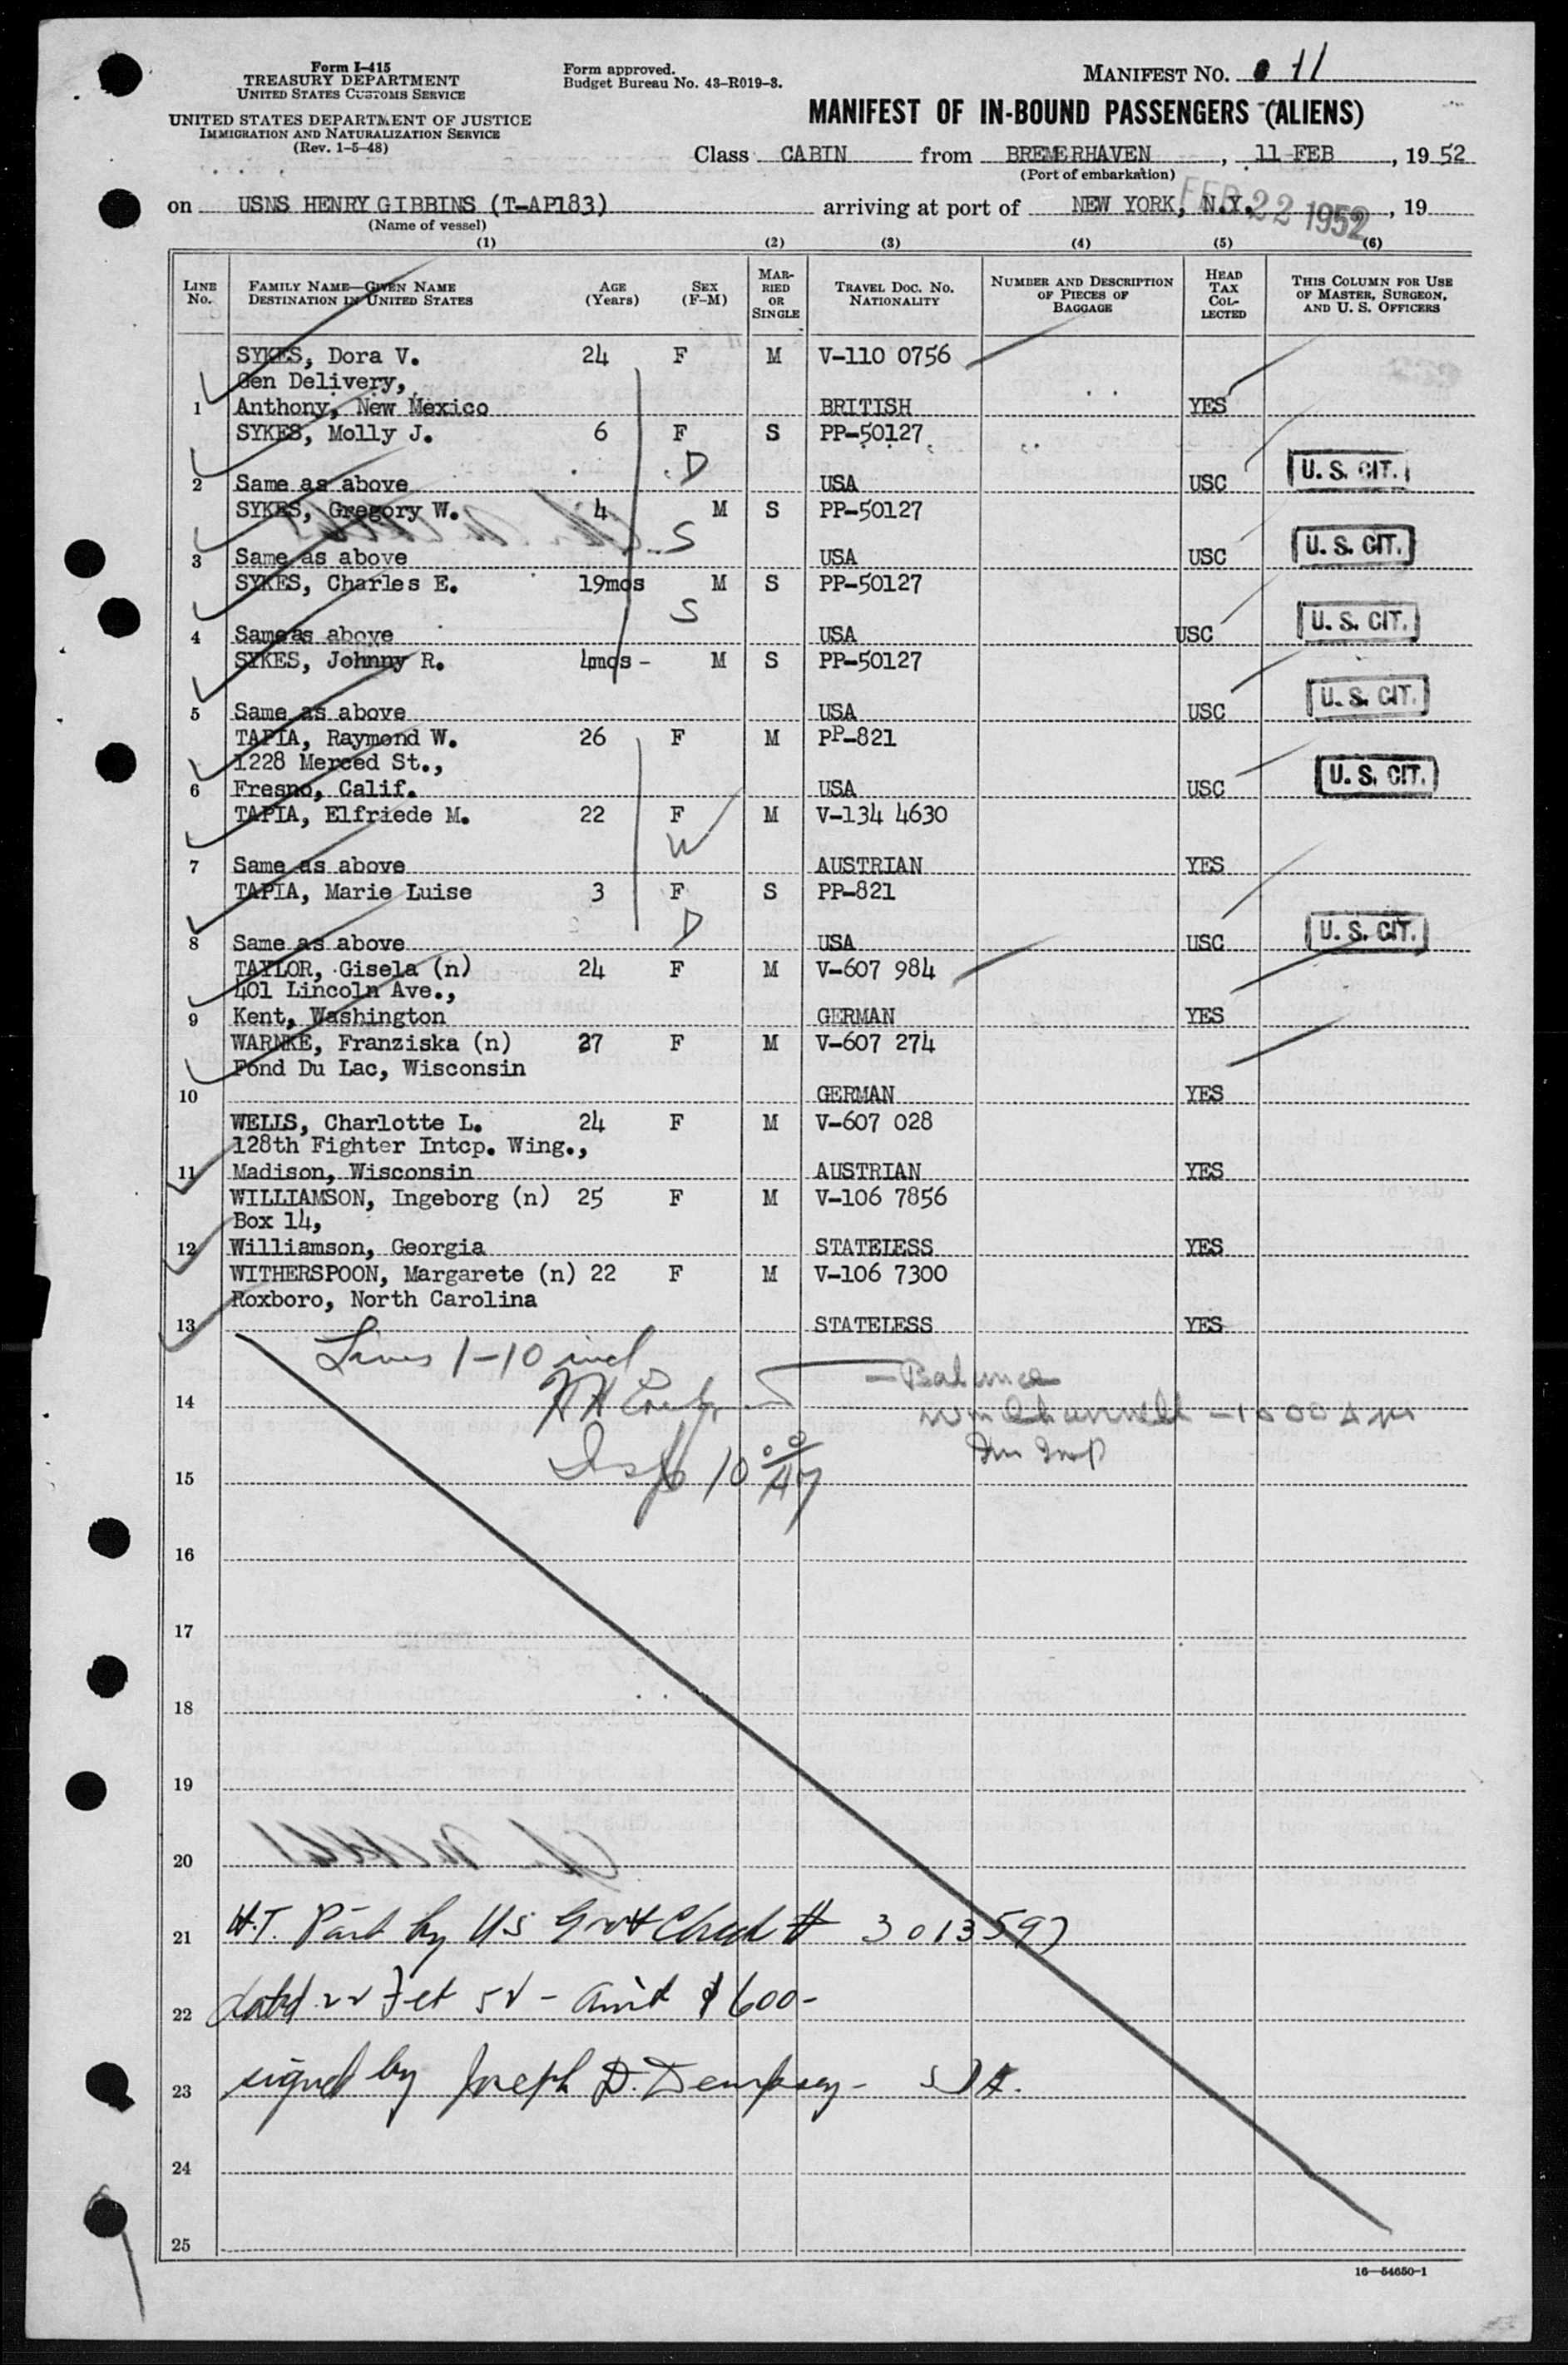 Form I-415
TREASURY DEPARTMENT
UNITED STATES CUSTOMS SERVICE
UNITED STATES DEPARTMENT OF JUSTICE
IMMIGRATION AND NATURALIZATION SERVICE
(Rev. 1-5-48)
Form approved.
Budget Bureau No. 43-R019-3.
MANIFEST NO. 11
MANIFEST OF IN-BOUND PASSENGERS (ALIENS)
Class CABIN from BREMERHAVEN, 11 FEB, 1952
(Port of embarkation)
on USNS HENRY GIBBINS (T-AP183) arriving at port of NEW YORK, N.Y., 19
FEB 22 1952
(Name of vessel)
(1) (2) (3) (4) (5) (6)
LINE No. FAMILY NAME—GIVEN NAME DESTINATION IN UNITED STATES AGE (Years) SEX (F-M) MARRIED OR SINGLE TRAVEL DOC. NO. NATIONALITY NUMBER AND DESCRIPTION OF PIECES OF BAGGAGE HEAD TAX COLLECTED THIS COLUMN FOR USE OF MASTER, SURGEON, AND U. S. OFFICERS
SYKES, Dora V. 24 F M V-110 0756
Gen Delivery,
1 Anthony, New Mexico BRITISH YES
SYKES, Molly J. 6 F S PP-50127
D
2 Same as above USA USC U. S. CIT.
SYKES, Gregory W. 4 M S PP-50127
S
3 Same as above USA USC U. S. CIT.
SYKES, Charles E. 19mos M S PP-50127
S
4 Same as above USA USC U. S. CIT.
SYKES, Johnny R. 4mos - M S PP-50127
5 Same as above USA USC U. S. CIT.
TAPIA, Raymond W. 26 F M PP-821
1228 Merced St.,
6 Fresno, Calif. USA USC U. S. CIT.
TAPIA, Elfriede M. 22 F M V-134 4630
W
7 Same as above AUSTRIAN YES
TAPIA, Marie Luise 3 F S PP-821
D
8 Same as above USA USC U. S. CIT.
TAYLOR, Gisela (n) 24 F M V-607 984
401 Lincoln Ave.,
9 Kent, Washington GERMAN YES
WARNKE, Franziska (n) 27 F M V-607 274
Fond Du Lac, Wisconsin
10 GERMAN YES
WELLS, Charlotte L. 24 F M V-607 028
128th Fighter Intcp. Wing.,
11 Madison, Wisconsin AUSTRIAN YES
WILLIAMSON, Ingeborg (n) 25 F M V-106 7856
Box 14,
12 Williamson, Georgia STATELESS YES
WITHERSPOON, Margarete (n) 22 F M V-106 7300
Roxboro, North Carolina
13 STATELESS YES
Lines 1-10 incl
Balance
14
Imm Insp
Insp 10
15
16
17
18
19
20
21 H.T. Paid by US Govt Check # 3013597
22 dated 22 Feb 52 - amt $600-
23 signed by Joseph D. Dempsey -
24
25
16—54650-1